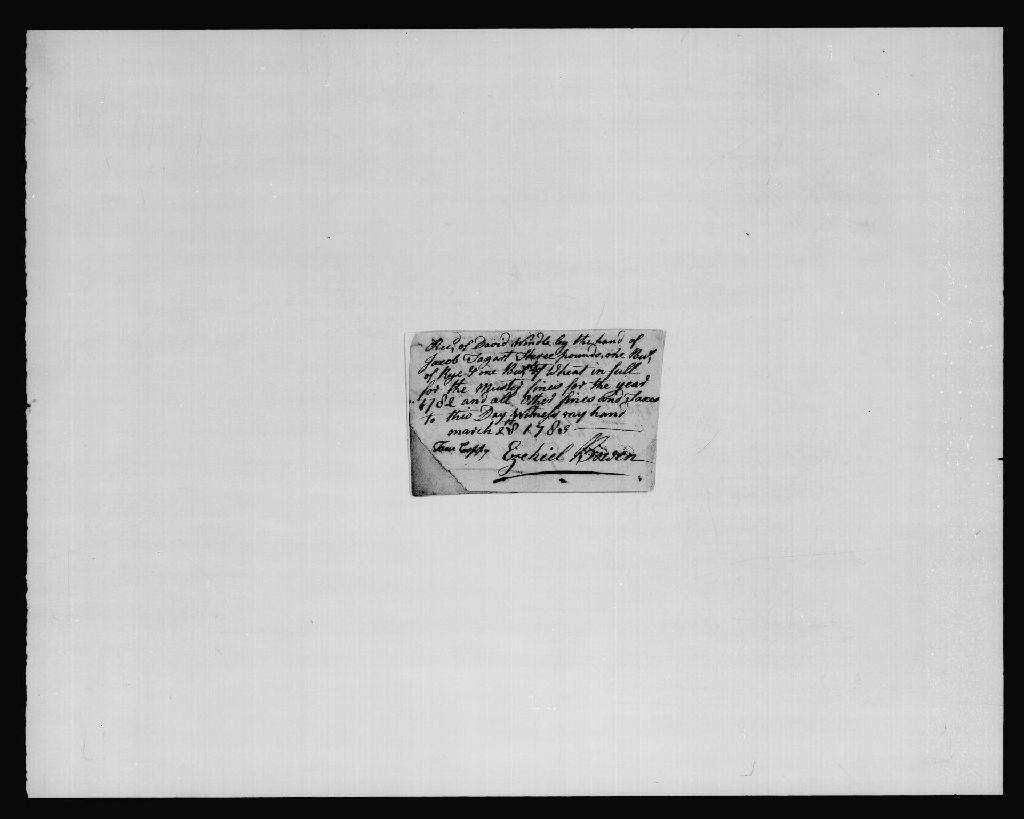 Recd, of David Windle by the hand of
Jacob Tagart three pounds, one Bus.
of Rye & one Bus. of Wheat in full
for the Muster fines for the year
1782 and all Other fines and Taxes
to this Day Witness my hand
march 28 1783
True Coppy Ezekiel